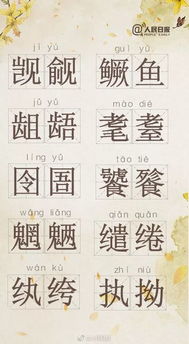 @人民日报
jì yú guì yú
觊觎 鳜鱼
jǔ yǔ mào dié
龃龉 耄耋
líng yǔ tāo tiè
囹圄 饕餮
wǎng liǎng qiǎn quǎn
魍魉 缱绻
wán kù zhí niù
纨绔 执拗